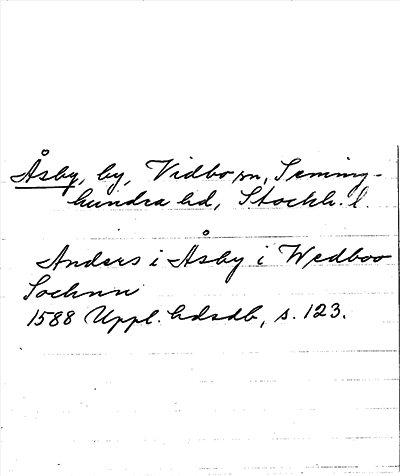 Åsby, by, Vidbo sn, Seming-
hundra hd, Stockh. l.
Anders i Åsby i Wedboo
Sochnn
1588 Uppl. hdsdb, s. 123.